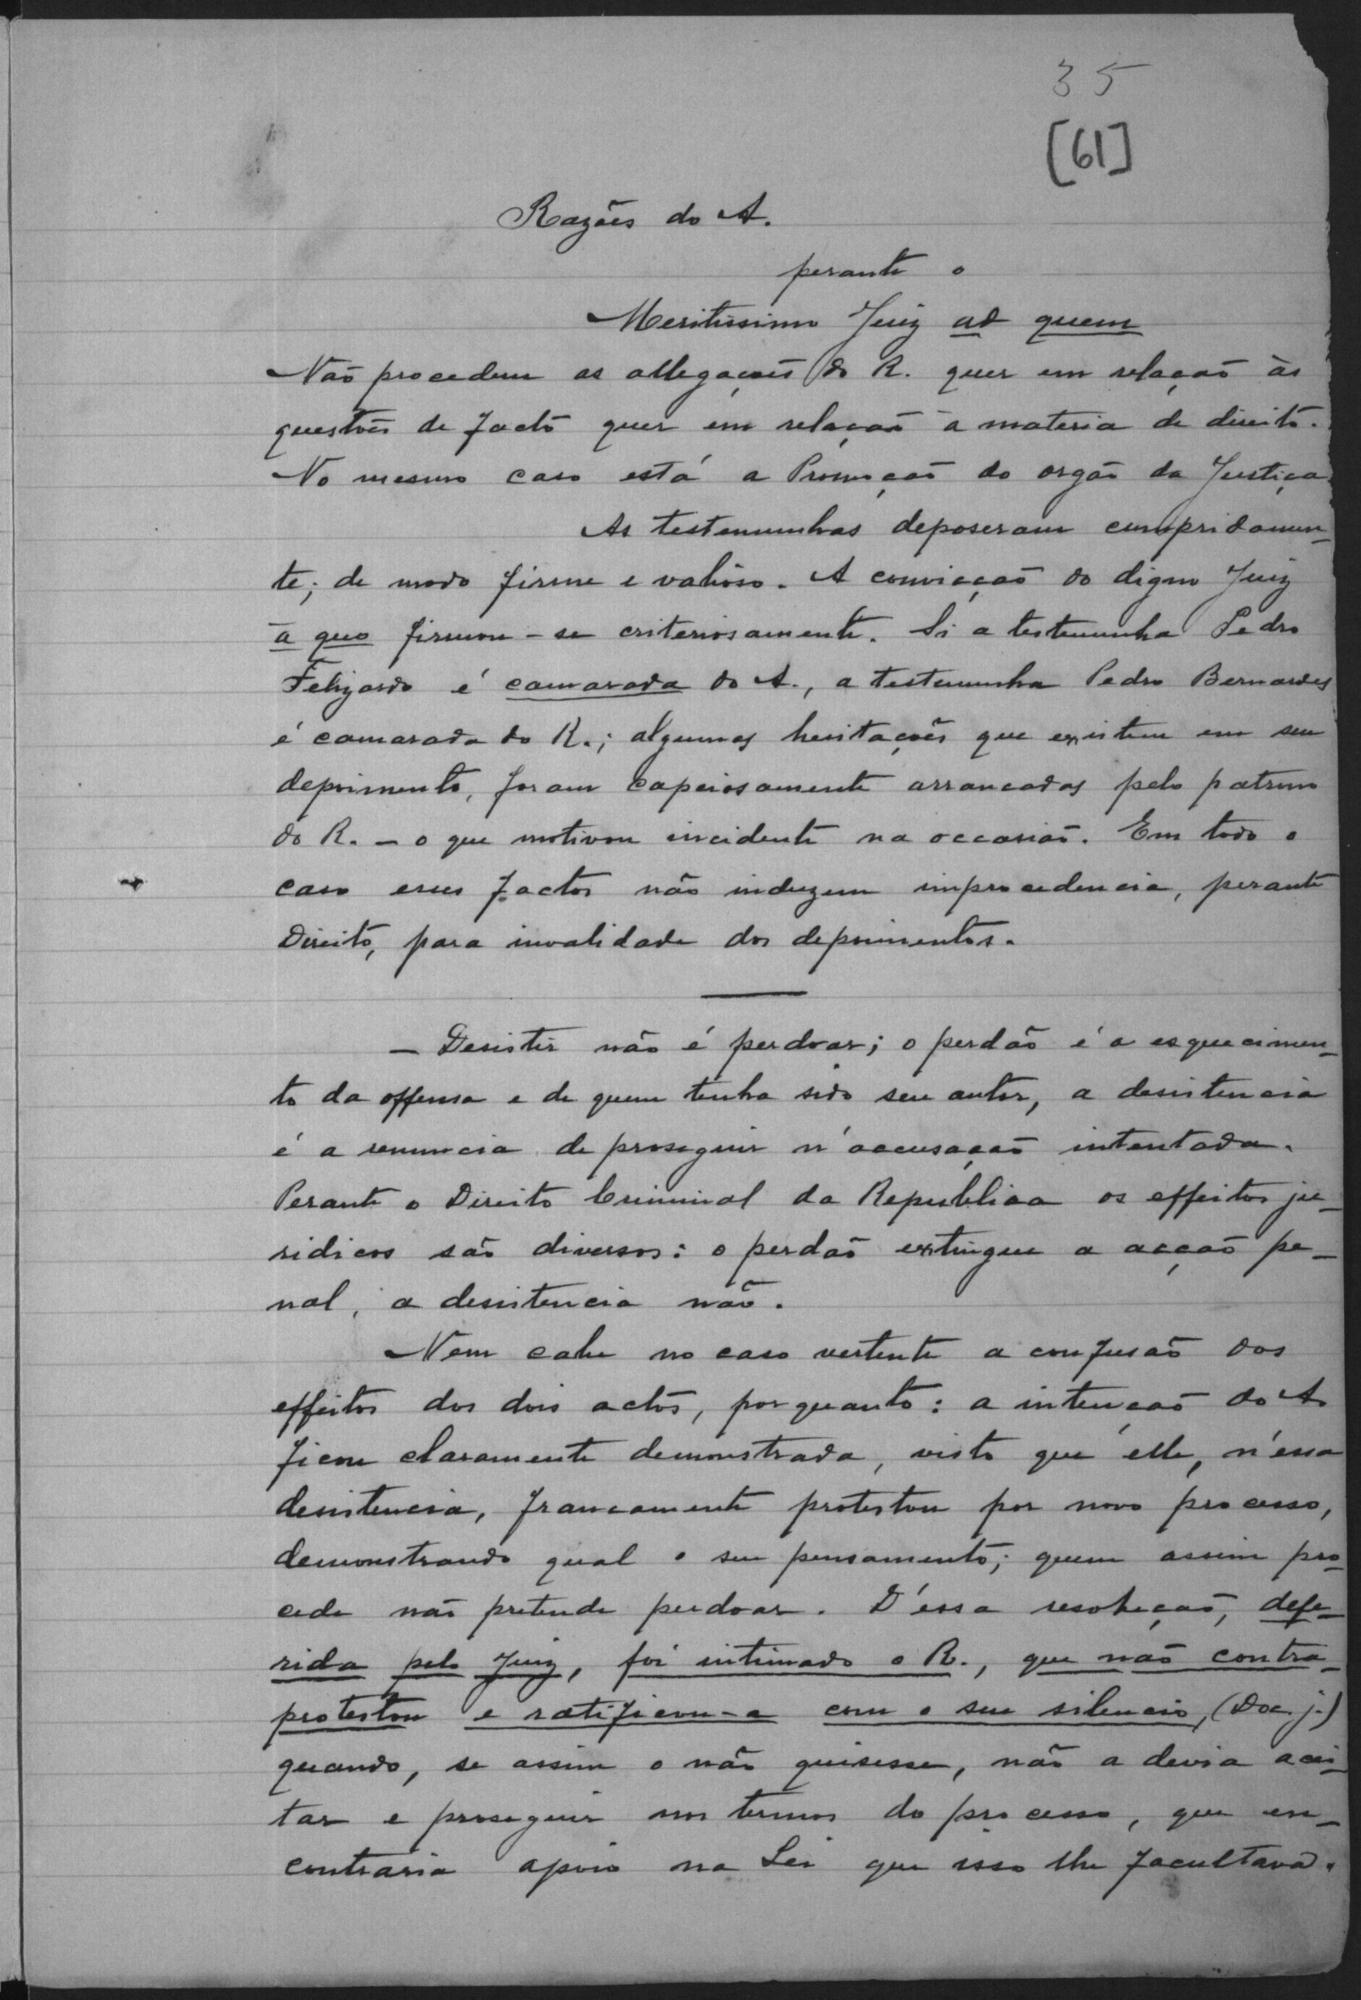 35
[61]
Razões do A.
perante o
Meritissimo Juiz ad quem
Não procedem as allegações do R. quer em relação às
questões de facto quer em relação à materia de direito.
No mesmo caso está a Promoção do orgão da Justiça
As testemunhas deposeram cumpridamen-
te; de modo firme e valioso. A convicção do digno Juiz
a quo firmou-se criteriosamente. Si a testemunha Pedro
Felizardo é camarada do A., a testemunha Pedro Bernardes
é camarada do R.; algumas hesitações que existem em seu
depoimento, foram capciosamente arrancadas pelo patrono
do R. - o que motivou incidente na occasião. Em todo o
caso esses factos não induzem improcedencia, perante
Direito, para invalidade dos depoimentos.
- Desistir não é perdoar; o perdão é o esquecimen-
to da offensa e de quem tenha sido seu autor, a desistencia
é a renuncia de proseguir n'accusação intentada.
Perante o Direito Criminal da Republica os effeitos ju-
ridicos são diversos: o perdão extingue a acção pe-
nal, a desistencia não.
Nem cabe no caso vertente a confusão dos
effeitos dos dois actos, porquanto: a intenção do A.
ficou claramente demonstrada, visto que elle, n'essa
desistencia, francamente protestou por novo processo,
demonstrando qual o seu pensamento; quem assim pro-
cede não pretende perdoar. D'essa resolução, defe-
rida pelo Juiz, foi intimado o R., que não contra-
protestou e ratificou-a com o seu silencio, (Doc j.)
quando, se assim o não quisesse, não a devia acei-
tar e proseguir nos termos do processo, que en-
contraria apoio na Lei que isso lhe facultava.